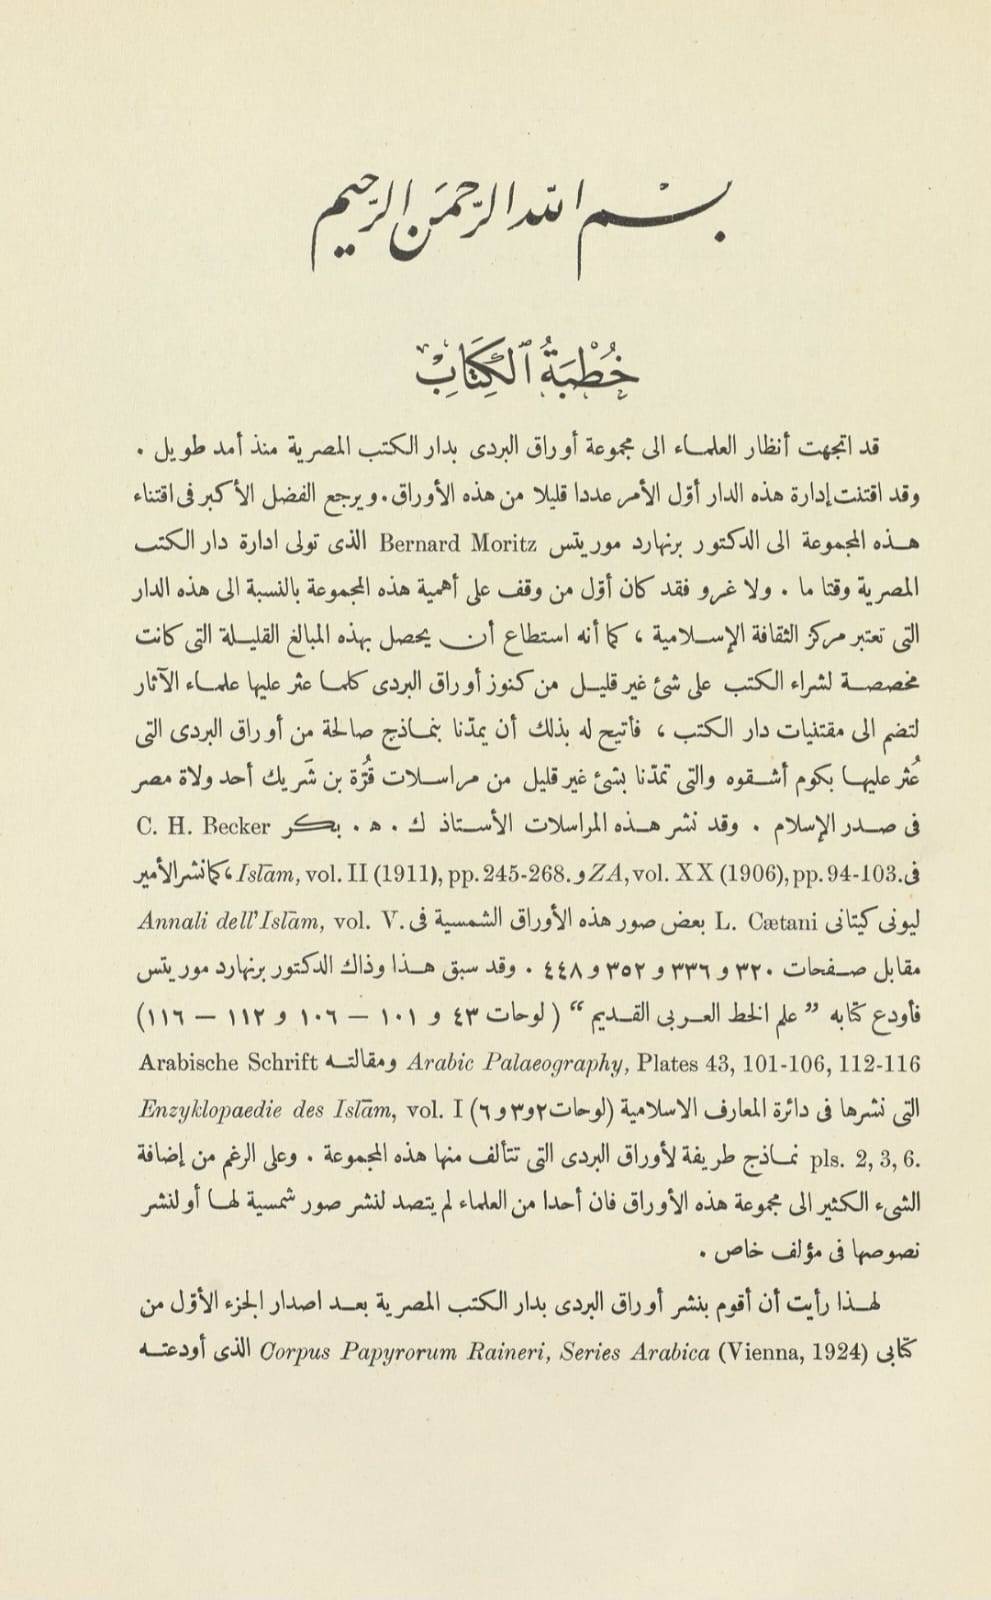 بسم الله الرحمن الرحيم
خُطْبَةُ ٱلْكِتَابِ
قد اتجهت أنظار العلماء الى مجموعة أوراق البردى بدار الكتب المصرية منذ أمد طويل .
وقد اقتنت إدارة هذه الدار أوّل الأمر عددا قليلا من هذه الأوراق . ويرجع الفضل الأكبر فى اقتناء
هذه المجموعة الى الدكتور برنهارد موريتس Bernard Moritz الذى تولى ادارة دار الكتب
المصرية وقتا ما . ولا غرو فقد كان أوّل من وقف على أهمية هذه المجموعة بالنسبة الى هذه الدار
التى تعتبر مركز الثقافة الإسلامية ، كما أنه استطاع أن يحصل بهذه المبالغ القليلة التى كانت
مخصصة لشراء الكتب على شئ غير قليل من كنوز أوراق البردى كلما عثر عليها علماء الآثار
لتضم الى مقتنيات دار الكتب ، فأتيح له بذلك أن يمدّنا بنماذج صالحة من أوراق البردى التى
عُثر عليها بكوم أشقوه والتى تمدّنا بشئ غير قليل من مراسلات قُرّة بن شَريك أحد ولاة مصر
فى صدر الإسلام . وقد نشر هذه المراسلات الأستاذ ك . ه . بكر C. H. Becker
فى ZA, vol. XX (1906), pp. 94-103. و Islām, vol. II (1911), pp. 245-268. ، كما نشر الأمير
ليونى كيتانى L. Cætani بعض صور هذه الأوراق الشمسية فى Annali dell' Islām, vol. V.
مقابل صفحات ٣٢٠ و ٣٣٦ و ٣٥٢ و ٤٤٨ . وقد سبق هذا وذاك الدكتور برنهارد موريتس
فأودع كتابه ” علم الخط العربى القديم “ ( لوحات ٤٣ و ١٠١ — ١٠٦ و ١١٢ — ١١٦ )
Arabic Palaeography, Plates 43, 101-106, 112-116 ومقالته Arabische Schrift
التى نشرها فى دائرة المعارف الاسلامية (لوحات ٢ و٣ و ٦) Enzyklopaedie des Islām, vol. I
pls. 2, 3, 6. نماذج طريفة لأوراق البردى التى تتألف منها هذه المجموعة . وعلى الرغم من إضافة
الشىء الكثير الى مجموعة هذه الأوراق فان أحدا من العلماء لم يتصد لنشر صور شمسية لها أو لنشر
نصوصها فى مؤلف خاص .
لهذا رأيت أن أقوم بنشر أوراق البردى بدار الكتب المصرية بعد اصدار الجزء الأوّل من
كتابى Corpus Papyrorum Raineri, Series Arabica (Vienna, 1924) الذى أودعته